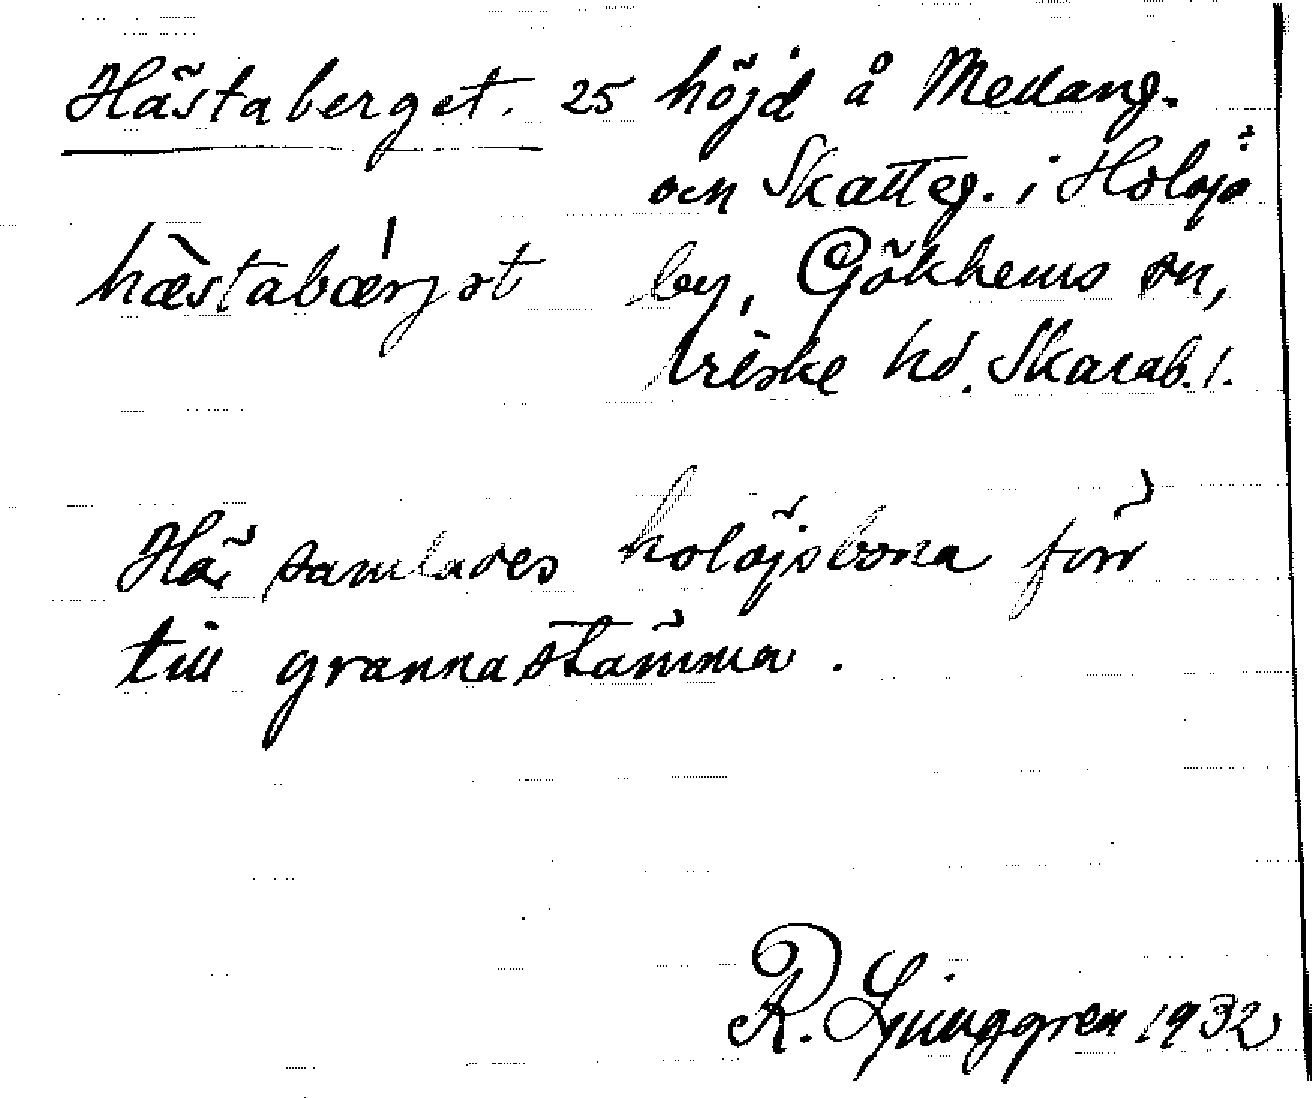 Hästaberget. 25 höjd å Mellang.
och Skatteg. i Holöjs
hæ̀stabær̍jət by, Gökhems sn,
Vilske hd. Skarab. l.
Här samlades holöjsbona förr
till grannastämma.
R. Ljunggren 1932